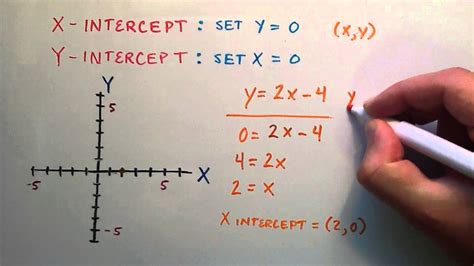 X-INTERCEPT : SET Y = 0 (X,Y)
Y-INTERCEPT : SET X = 0
Y
5
-5
X
-5
Y = 2X - 4
0 = 2X - 4
4 = 2X
2 = X
X INTERCEPT = (2,0)
Y